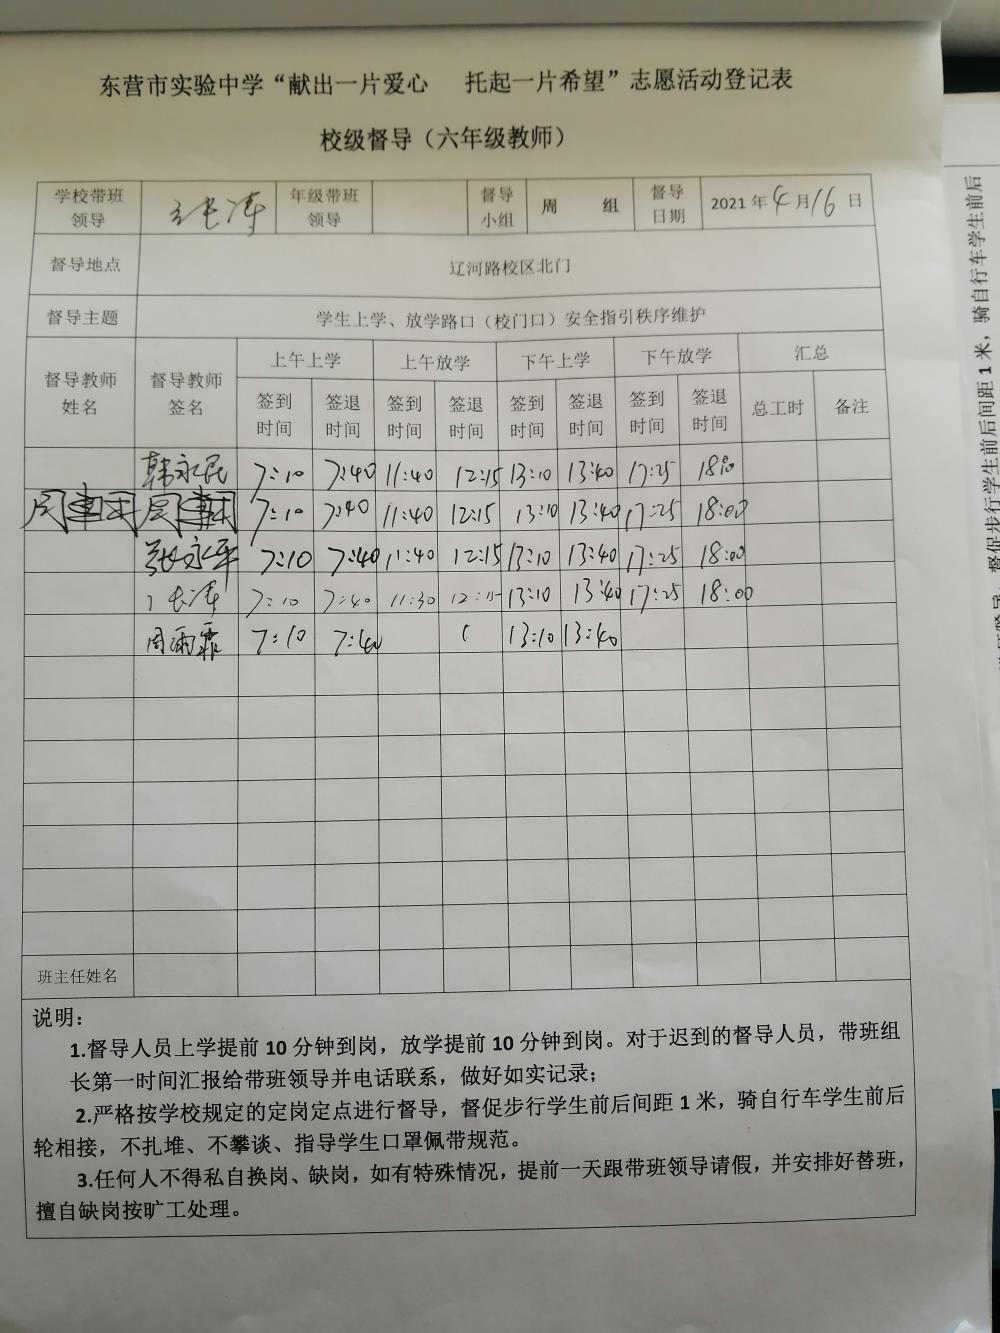 东营市实验中学“献出一片爱心 托起一片希望”志愿活动登记表
校级督导（六年级教师）
学校带班领导 张涛 年级带班领导 督导小组 周 组 督导日期 2021年4月16日
督导地点 辽河路校区北门
督导主题 学生上学、放学路口（校门口）安全指引秩序维护
督导教师姓名 督导教师签名 上午上学 上午放学 下午上学 下午放学 汇总
签到时间 签退时间 签到时间 签退时间 签到时间 签退时间 签到时间 签退时间 总工时 备注
韩永民 7:10 7:40 11:40 12:15 13:10 13:40 17:25
7:10 7:40 11:40 12:15 13:10 13:40 17:25 18:00
张永平 7:10 7:40 11:40 12:15 13:10 13:40 17:25 18:00
7:10 7:40 11:30 12:15 13:10 13:40 17:25 18:00
周雨霏 7:10 7:40 13:10 13:40
班主任姓名
说明：
1.督导人员上学提前 10 分钟到岗，放学提前 10 分钟到岗。对于迟到的督导人员，带班组
长第一时间汇报给带班领导并电话联系，做好如实记录；
2.严格按学校规定的定岗定点进行督导，督促步行学生前后间距 1 米，骑自行车学生前后
轮相接，不扎堆、不攀谈、指导学生口罩佩带规范。
3.任何人不得私自换岗、缺岗，如有特殊情况，提前一天跟带班领导请假，并安排好替班，
擅自缺岗按旷工处理。
督促步行学生前后间距 1 米，骑自行车学生前后